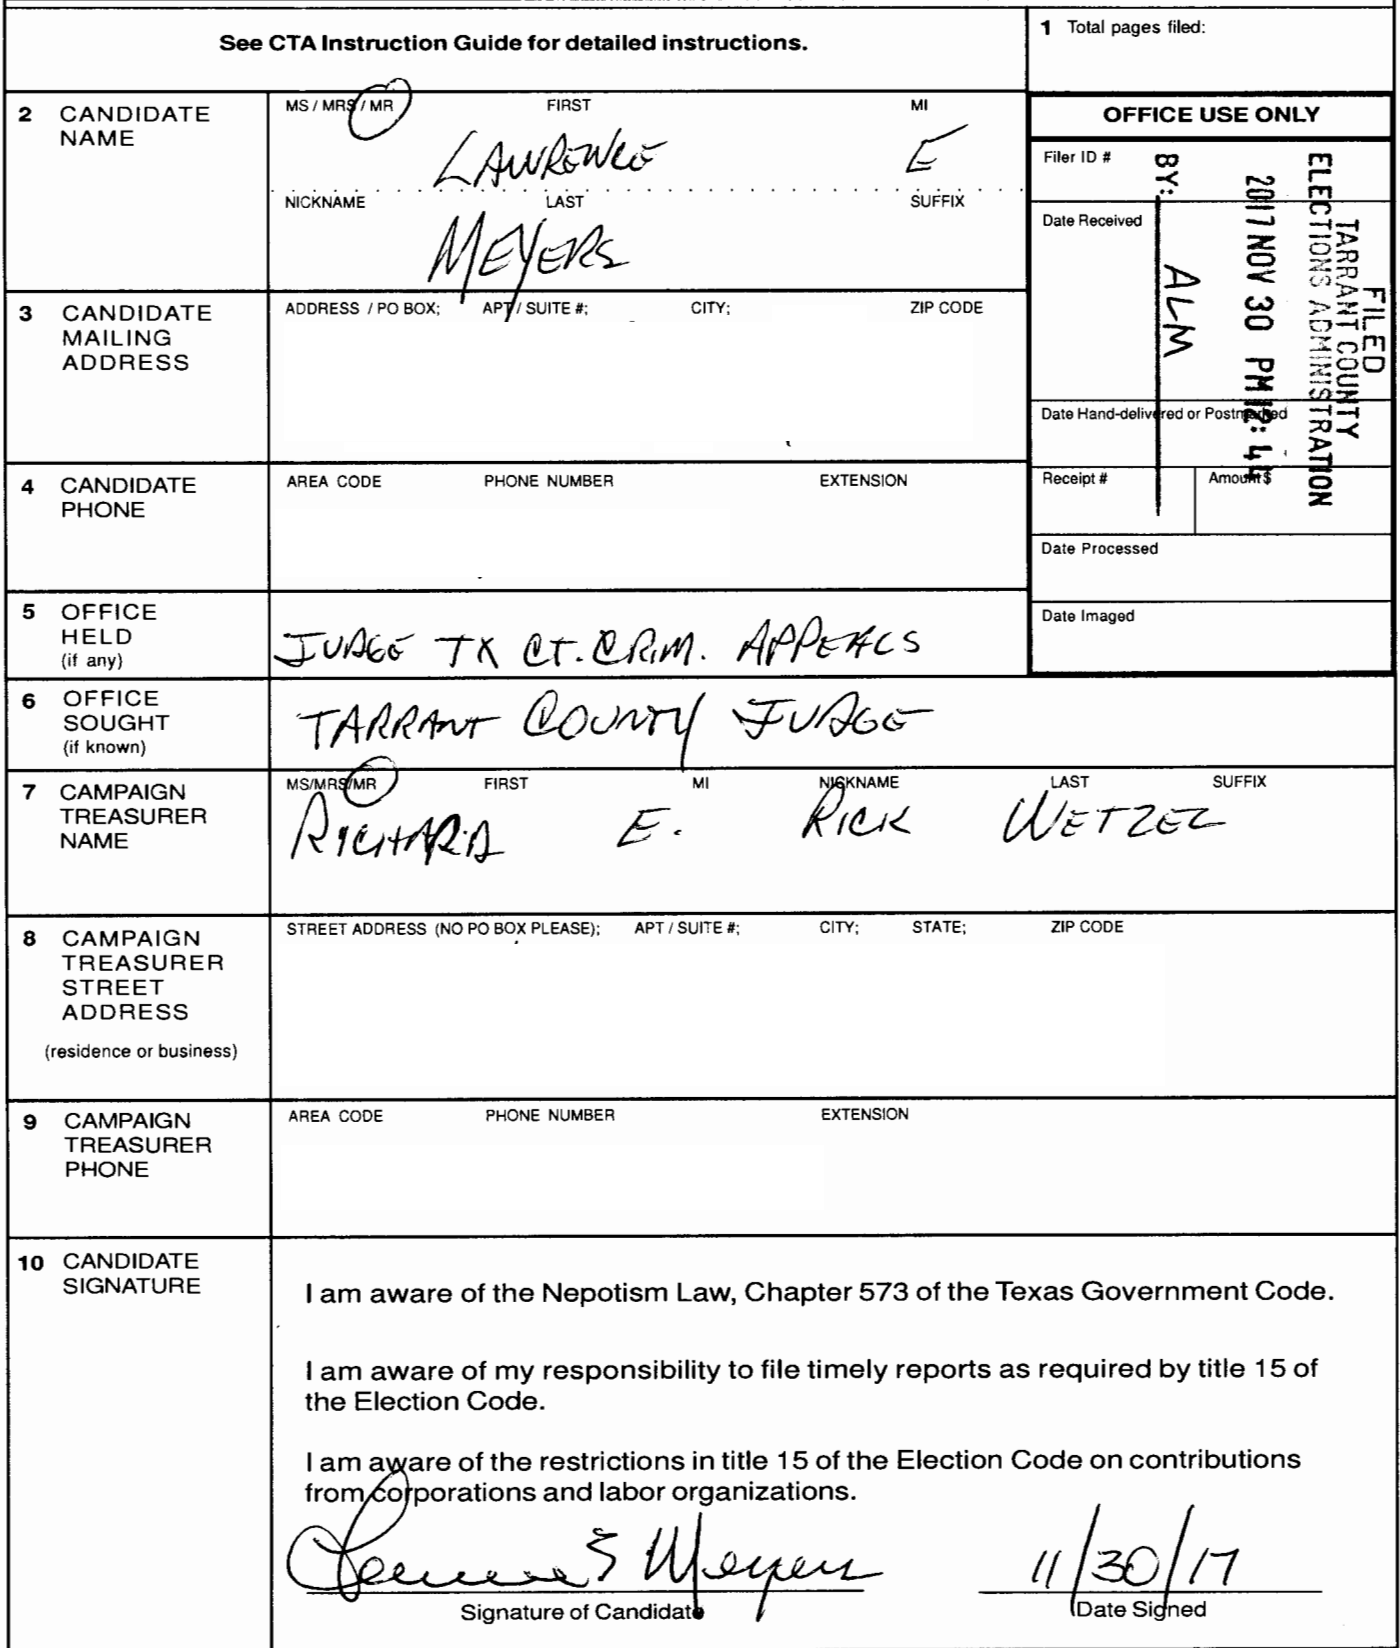 See CTA Instruction Guide for detailed instructions.
1 Total pages filed:
2 CANDIDATE NAME
MS / MRS / MR FIRST MI
LAWRENCE E
NICKNAME LAST SUFFIX
MEYERS
OFFICE USE ONLY
Filer ID #
Date Received
Date Hand-delivered or Postmarked
Receipt # Amount $
Date Processed
Date Imaged
FILED
TARRANT COUNTY
ELECTIONS ADMINISTRATION
2017 NOV 30 PM 12:44
BY: ALM
3 CANDIDATE MAILING ADDRESS
ADDRESS / PO BOX; APT / SUITE #; CITY; ZIP CODE
4 CANDIDATE PHONE
AREA CODE PHONE NUMBER EXTENSION
5 OFFICE HELD (if any)
JUDGE TX CT. CRIM. APPEALS
6 OFFICE SOUGHT (if known)
TARRANT COUNTY JUDGE
7 CAMPAIGN TREASURER NAME
MS/MRS/MR FIRST MI NICKNAME LAST SUFFIX
RICHARD E. RICK WETZEL
8 CAMPAIGN TREASURER STREET ADDRESS
(residence or business)
STREET ADDRESS (NO PO BOX PLEASE); APT / SUITE #; CITY; STATE; ZIP CODE
9 CAMPAIGN TREASURER PHONE
AREA CODE PHONE NUMBER EXTENSION
10 CANDIDATE SIGNATURE
I am aware of the Nepotism Law, Chapter 573 of the Texas Government Code.
I am aware of my responsibility to file timely reports as required by title 15 of
the Election Code.
I am aware of the restrictions in title 15 of the Election Code on contributions
from corporations and labor organizations.
Lawrence E Meyers 11/30/17
Signature of Candidate Date Signed